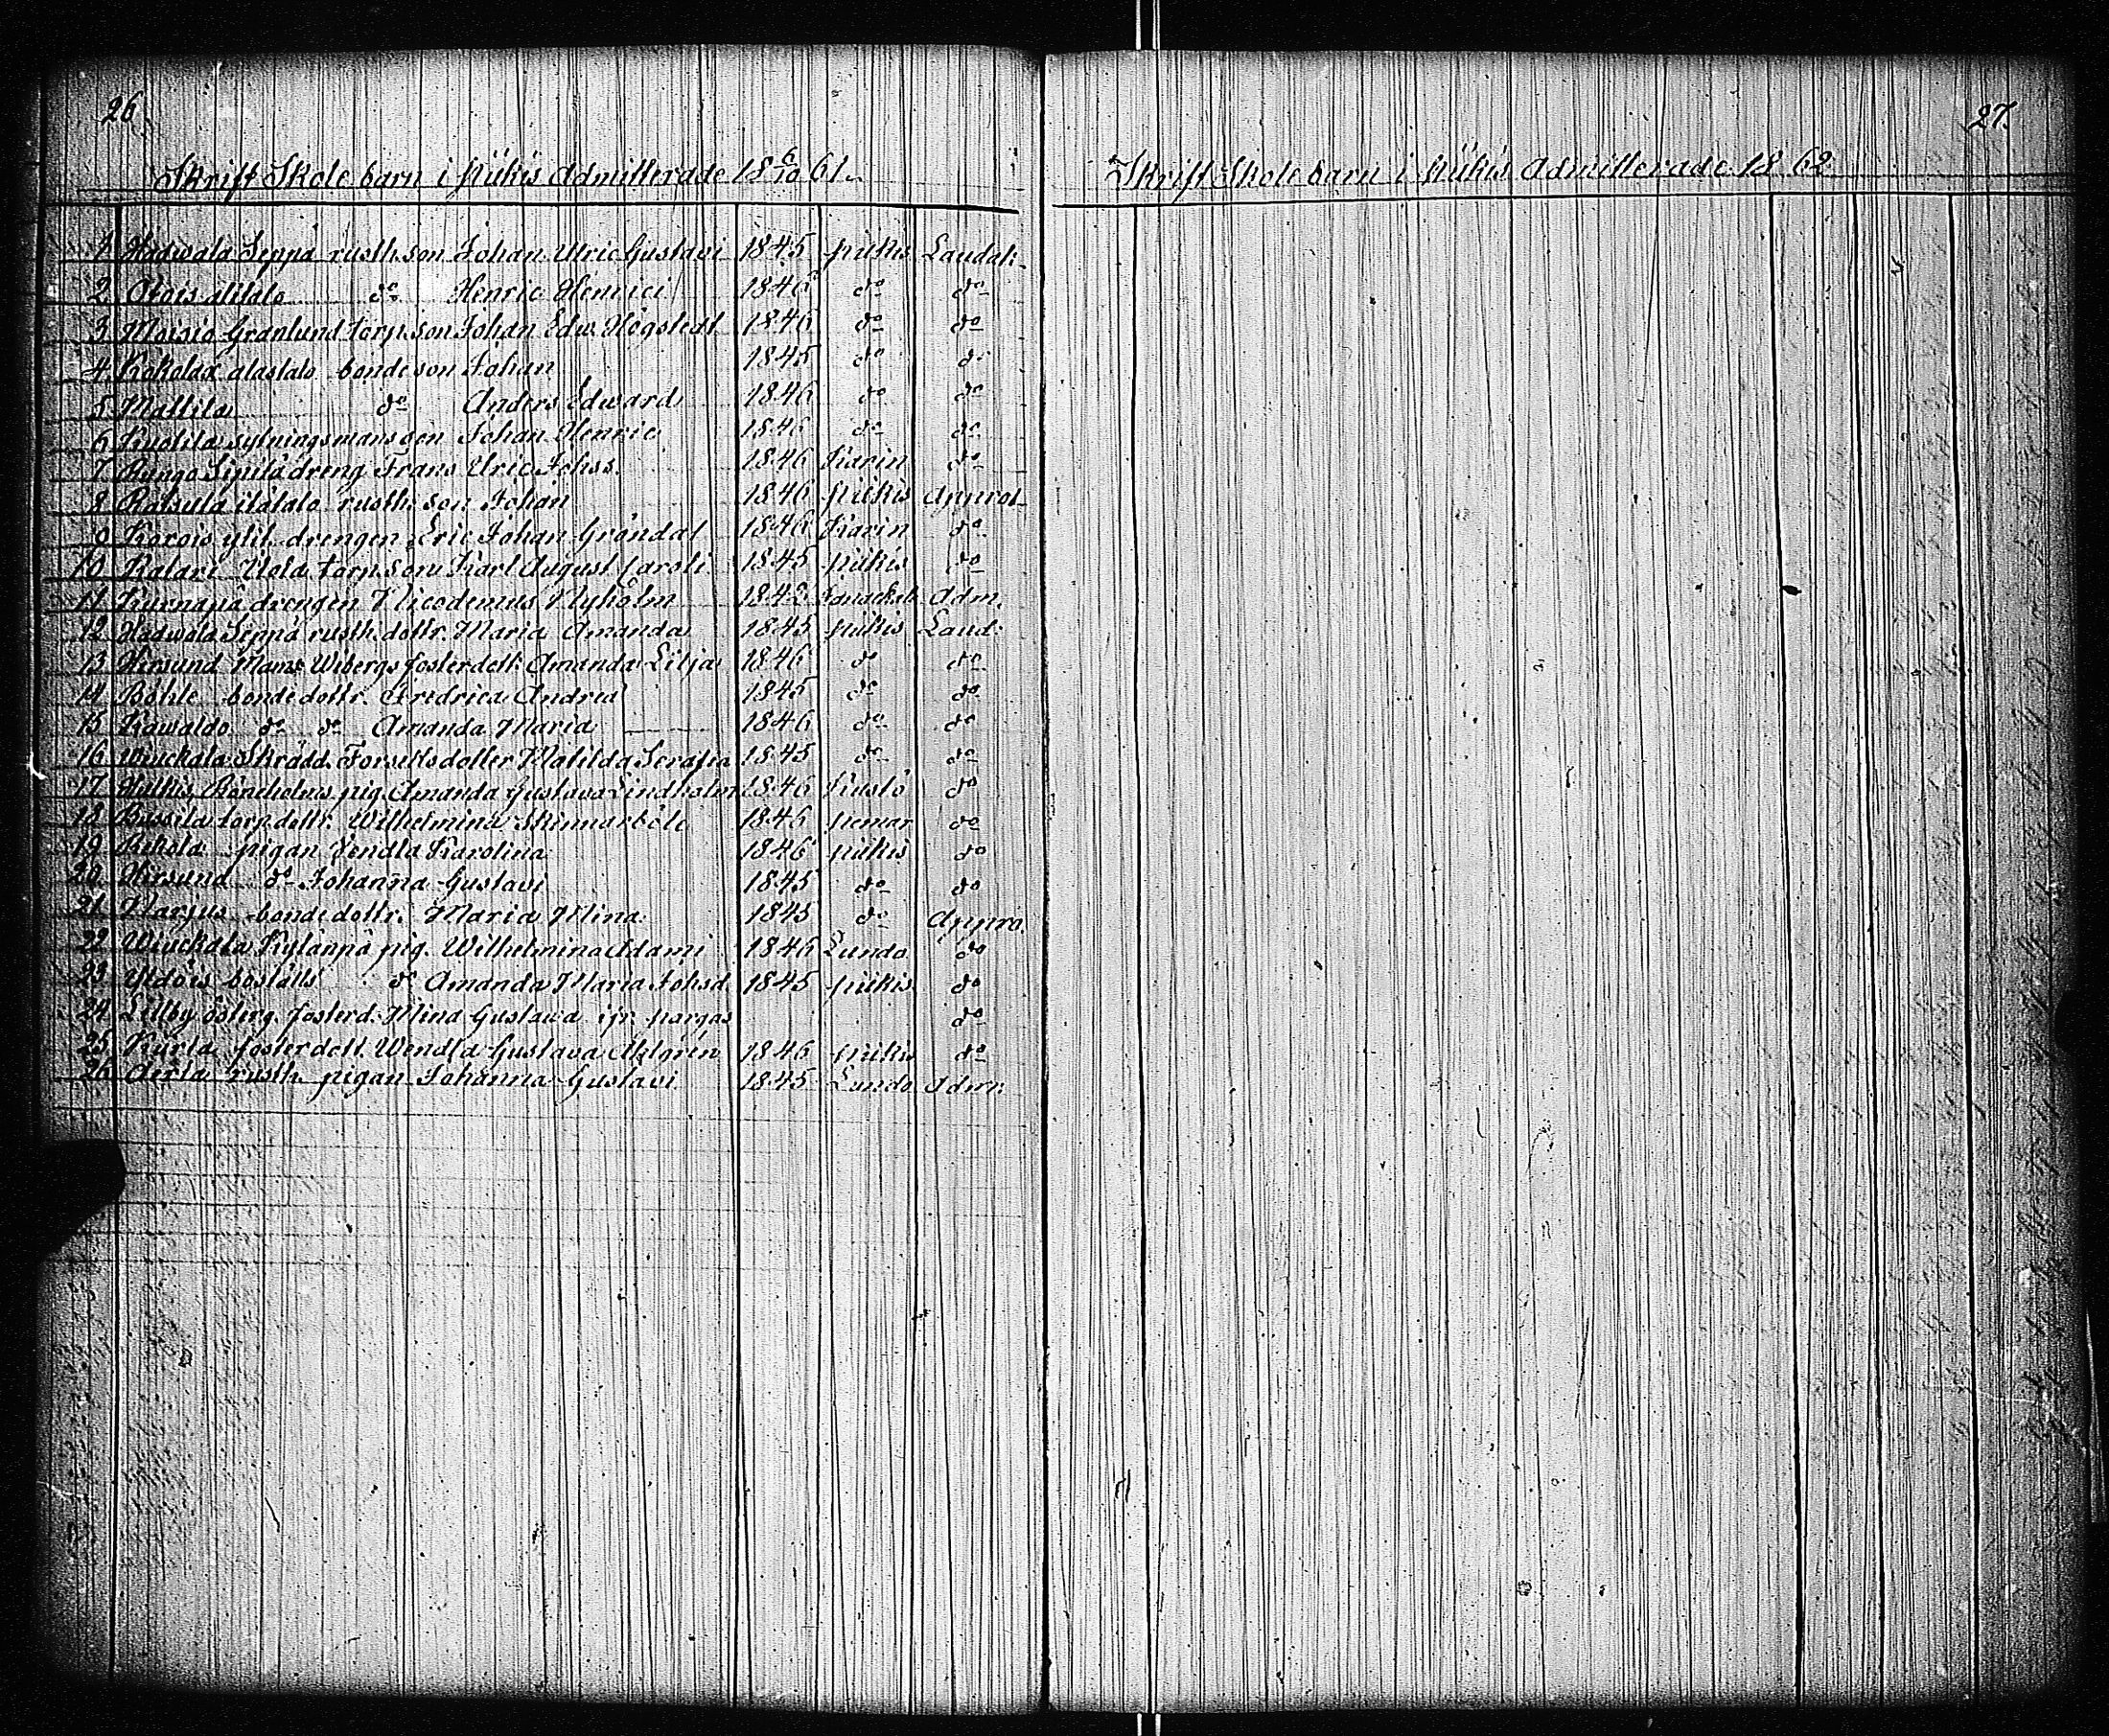 26.
Skrift Skole barn i Piikis Admitterade 18 6/10 61.
1 Hadwala Seppä rusth. son Johan Ulric Gustavi 1845 Piikis Laudab.
2 Otois alitalo do Henric Henrici 1846 do do
3 Moisio Granlund torp. son Johan Edw. Högstedt 1846 do do
4 Kokolda alastalo bondeson Johan 1845 do do
5 Mattila do Anders Edward 1846 do do
6 Kuotila sytningsmans son Johan Henric 1846 do do
7 Rungo Sipilä dreng Frans Ulric Johss. 1846 Karin do
8 Raisula itätalo rusth. son Johan 1846 Piikis Approb.
9 Karois ylit. drengen Eric Johan Gröndal 1846 Karin do
10 Katari Uola torp. son Karl August Caroli 1845 Piikis do
11 Kurnapä drengen Nicodemus Nyholm 1842 Adm.
12 Hadwala Seppä rusth. dottr. Maria Amanda 1845 Piikis Laud.
13 Hirsund Mams. Wibergs fosterdott. Amanda Lilja 1846 do do
14 Böhle bonde dottr. Fredrica Andrea 1845 do do
15 Kawaldo do do Amanda Maria 1846 do do
16 Winckala Skrädd. Forsells dotter Matilda Serafia 1845 do do
17 pig. Amanda Gustava Lindholm 1846 Kustö do
18 Bussila torp. dottr. Wilhelmina Skinnarböle 1846 Pemar do
19 Rekola pigan Vendla Karolina 1846 Piikis do
20 Hirsund do Johanna Gustavi 1845 do do
21 Harjus bonde dottr. Maria Mina 1845 do Appro.
22 Winckala Kylänpä pig. Wilhelmina Adami 1846 Lundo do
23 Yldöis boställs do Amanda Maria Johsd. 1845 Piikis do
24 Lillby österg. fosterd. Mina Gustava ifr. Pargas do
25 Kurla fosterdott. Wendla Gustava Ahlgrén 1846 Piikis do
26 rusth. pigan Johanna Gustavi 1845 Lundo Adm.
27.
Skrift Skole barn i Piikis Admitterade 18 62